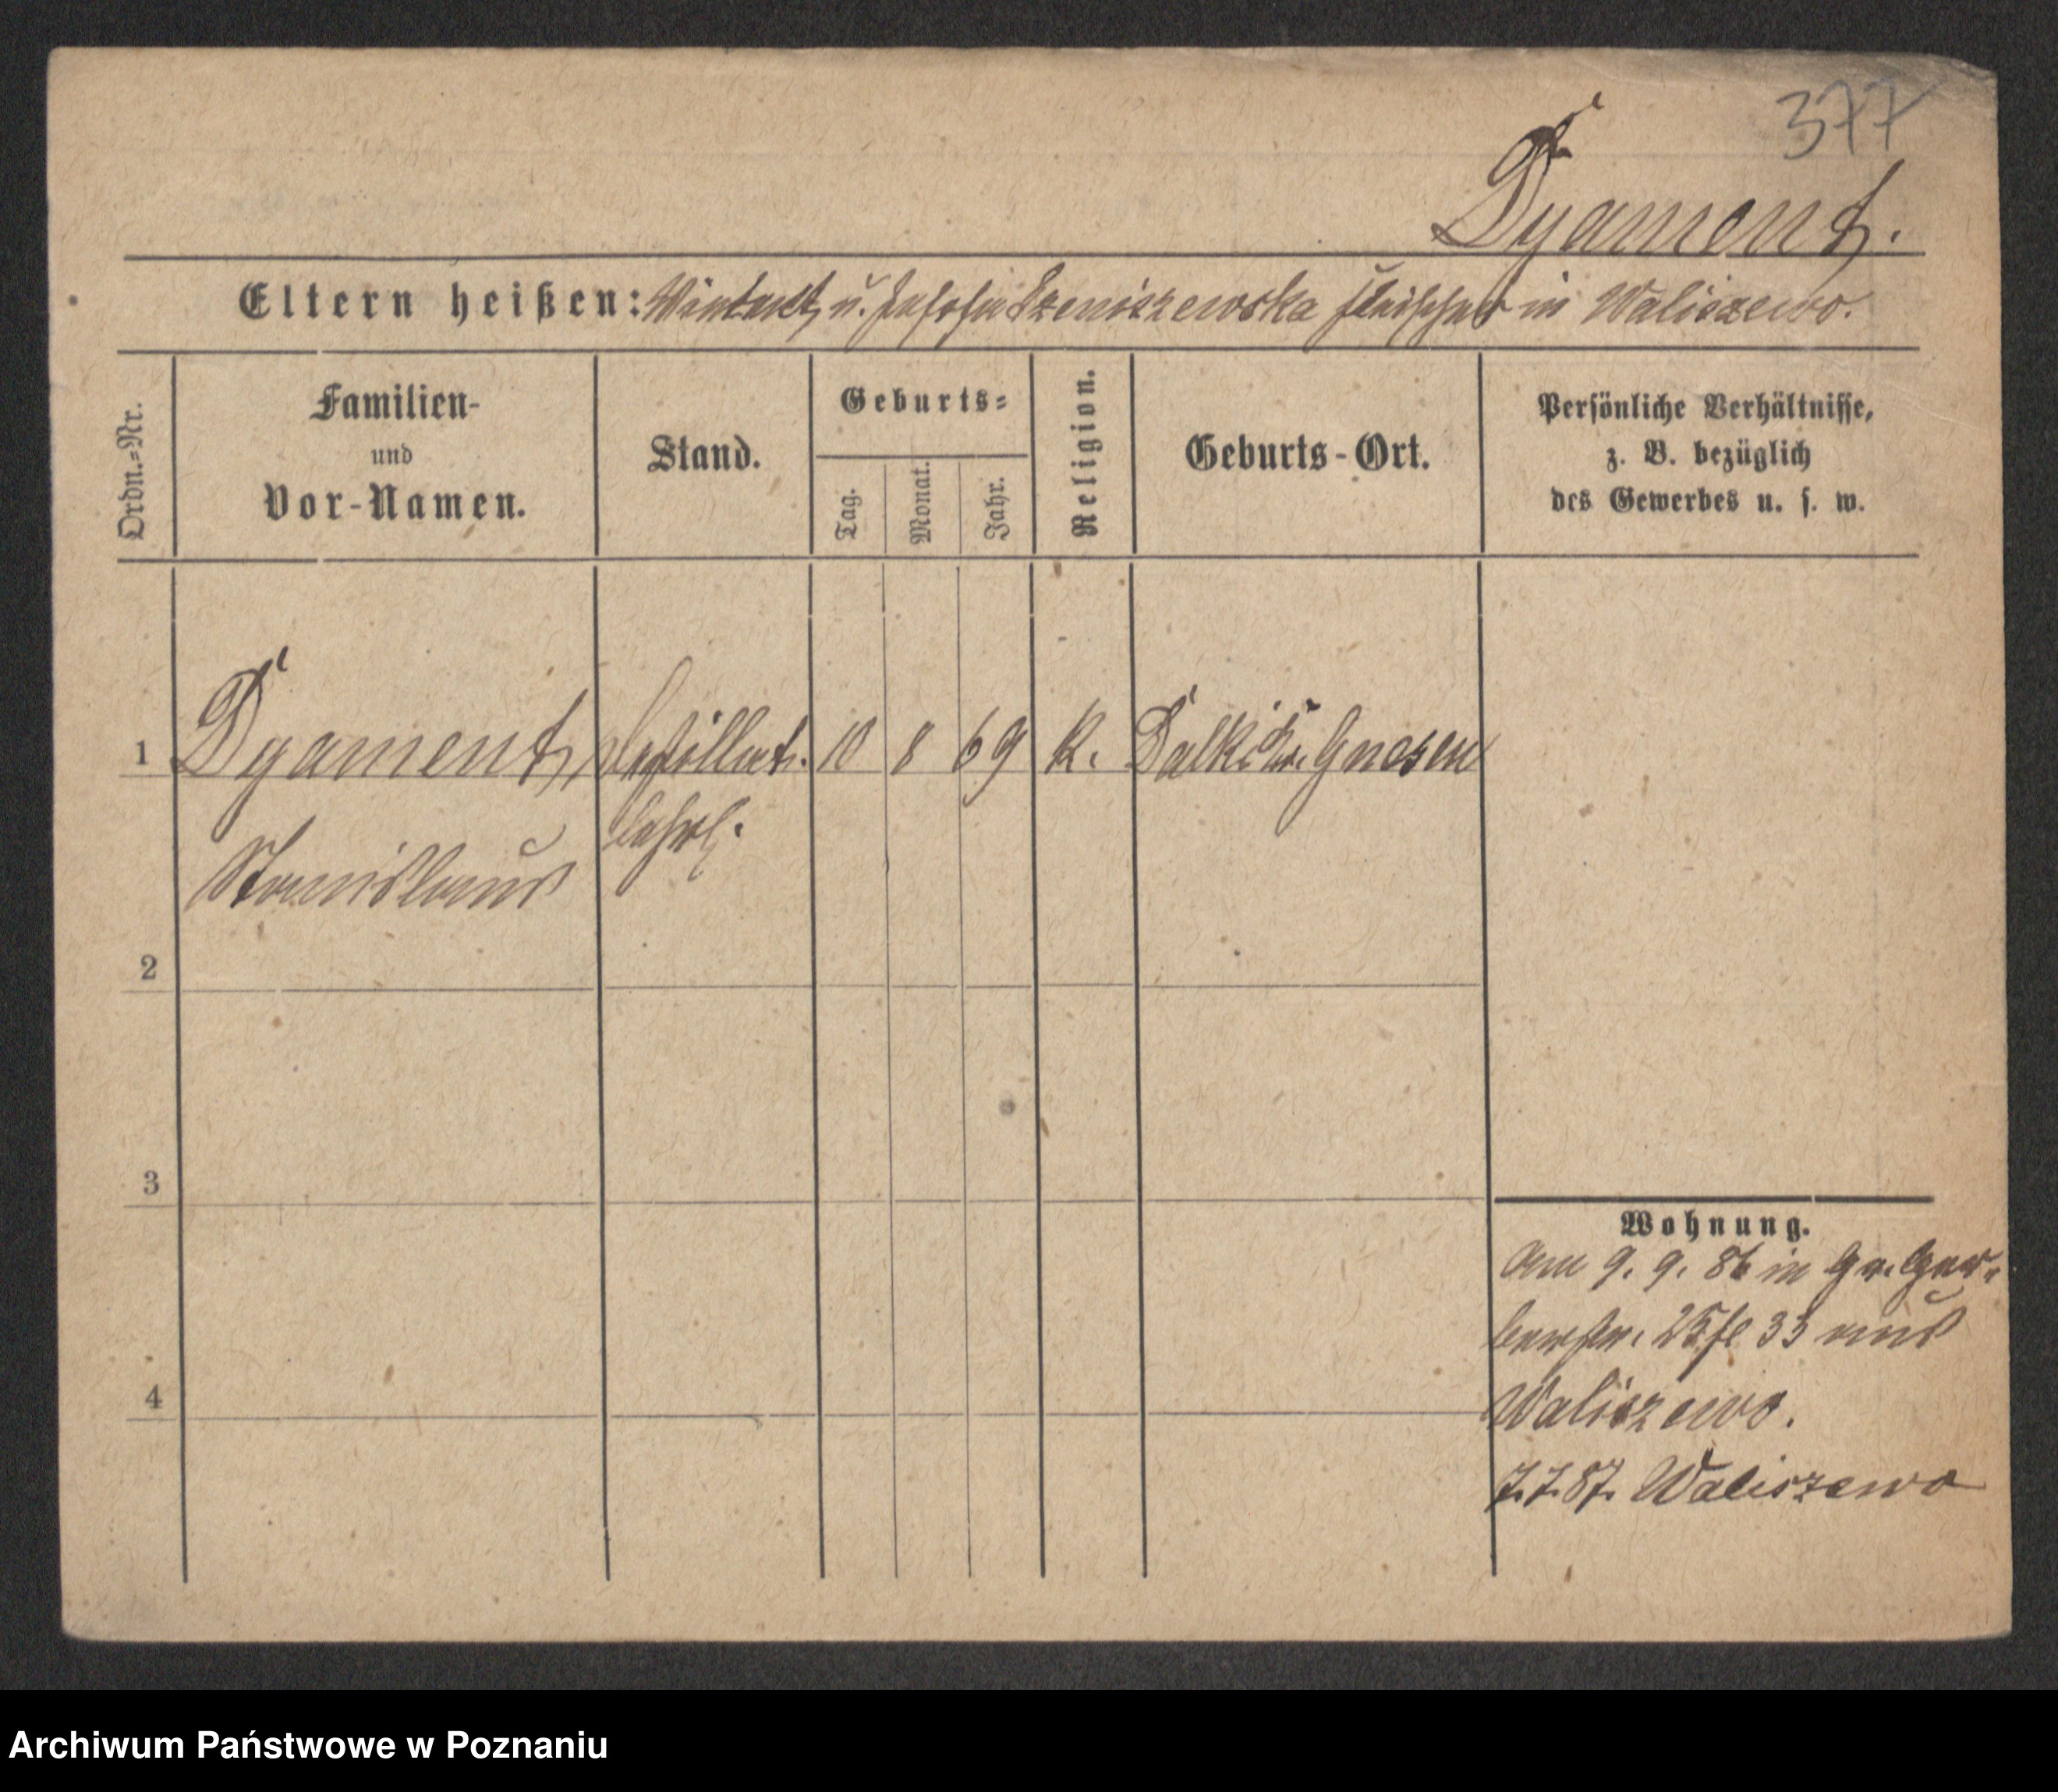 377
Dyament.
Eltern heißen: Vincent u. Josefa Szeniszewska Fleischer in Waliszewo.
Ordn.-Nr.
Familien-
und
Vor-Namen.
Stand.
Geburts-
Tag.
Monat.
Jahr.
Religion.
Geburts-Ort.
Persönliche Verhältnisse,
z. B. bezüglich
des Gewerbes u. s. w.
1 Dyament, Destillat. 10 8 69 K. Dalki Kr. Gnesen
Stanislaus
lehrl.
2
3
4
Wohnung.
Am 9. 9. 86 in Gr. Ger-
berstr. 33 aus
Waliszewo.
7.7.87. Waliszewo
Archiwum Państwowe w Poznaniu